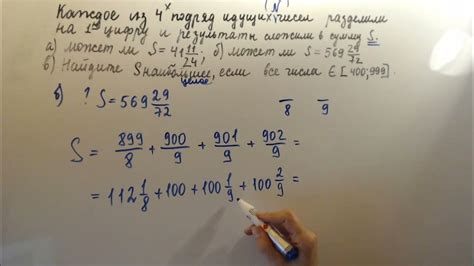 Каждое из 4ˣ подряд идущих чисел разделили (N)
на 1ую цифру и результаты сложили в сумму S.
а) может ли S = 41 11/24, б) может ли S = 569 29/72
в) Найдите S наибольшее, если все числа ∈ [400; 999]
целое
б) ? S = 569 29/72 8 9
S = 899/8 + 900/9 + 901/9 + 902/9 =
= 112 1/8 + 100 + 100 1/9 + 100 2/9 =